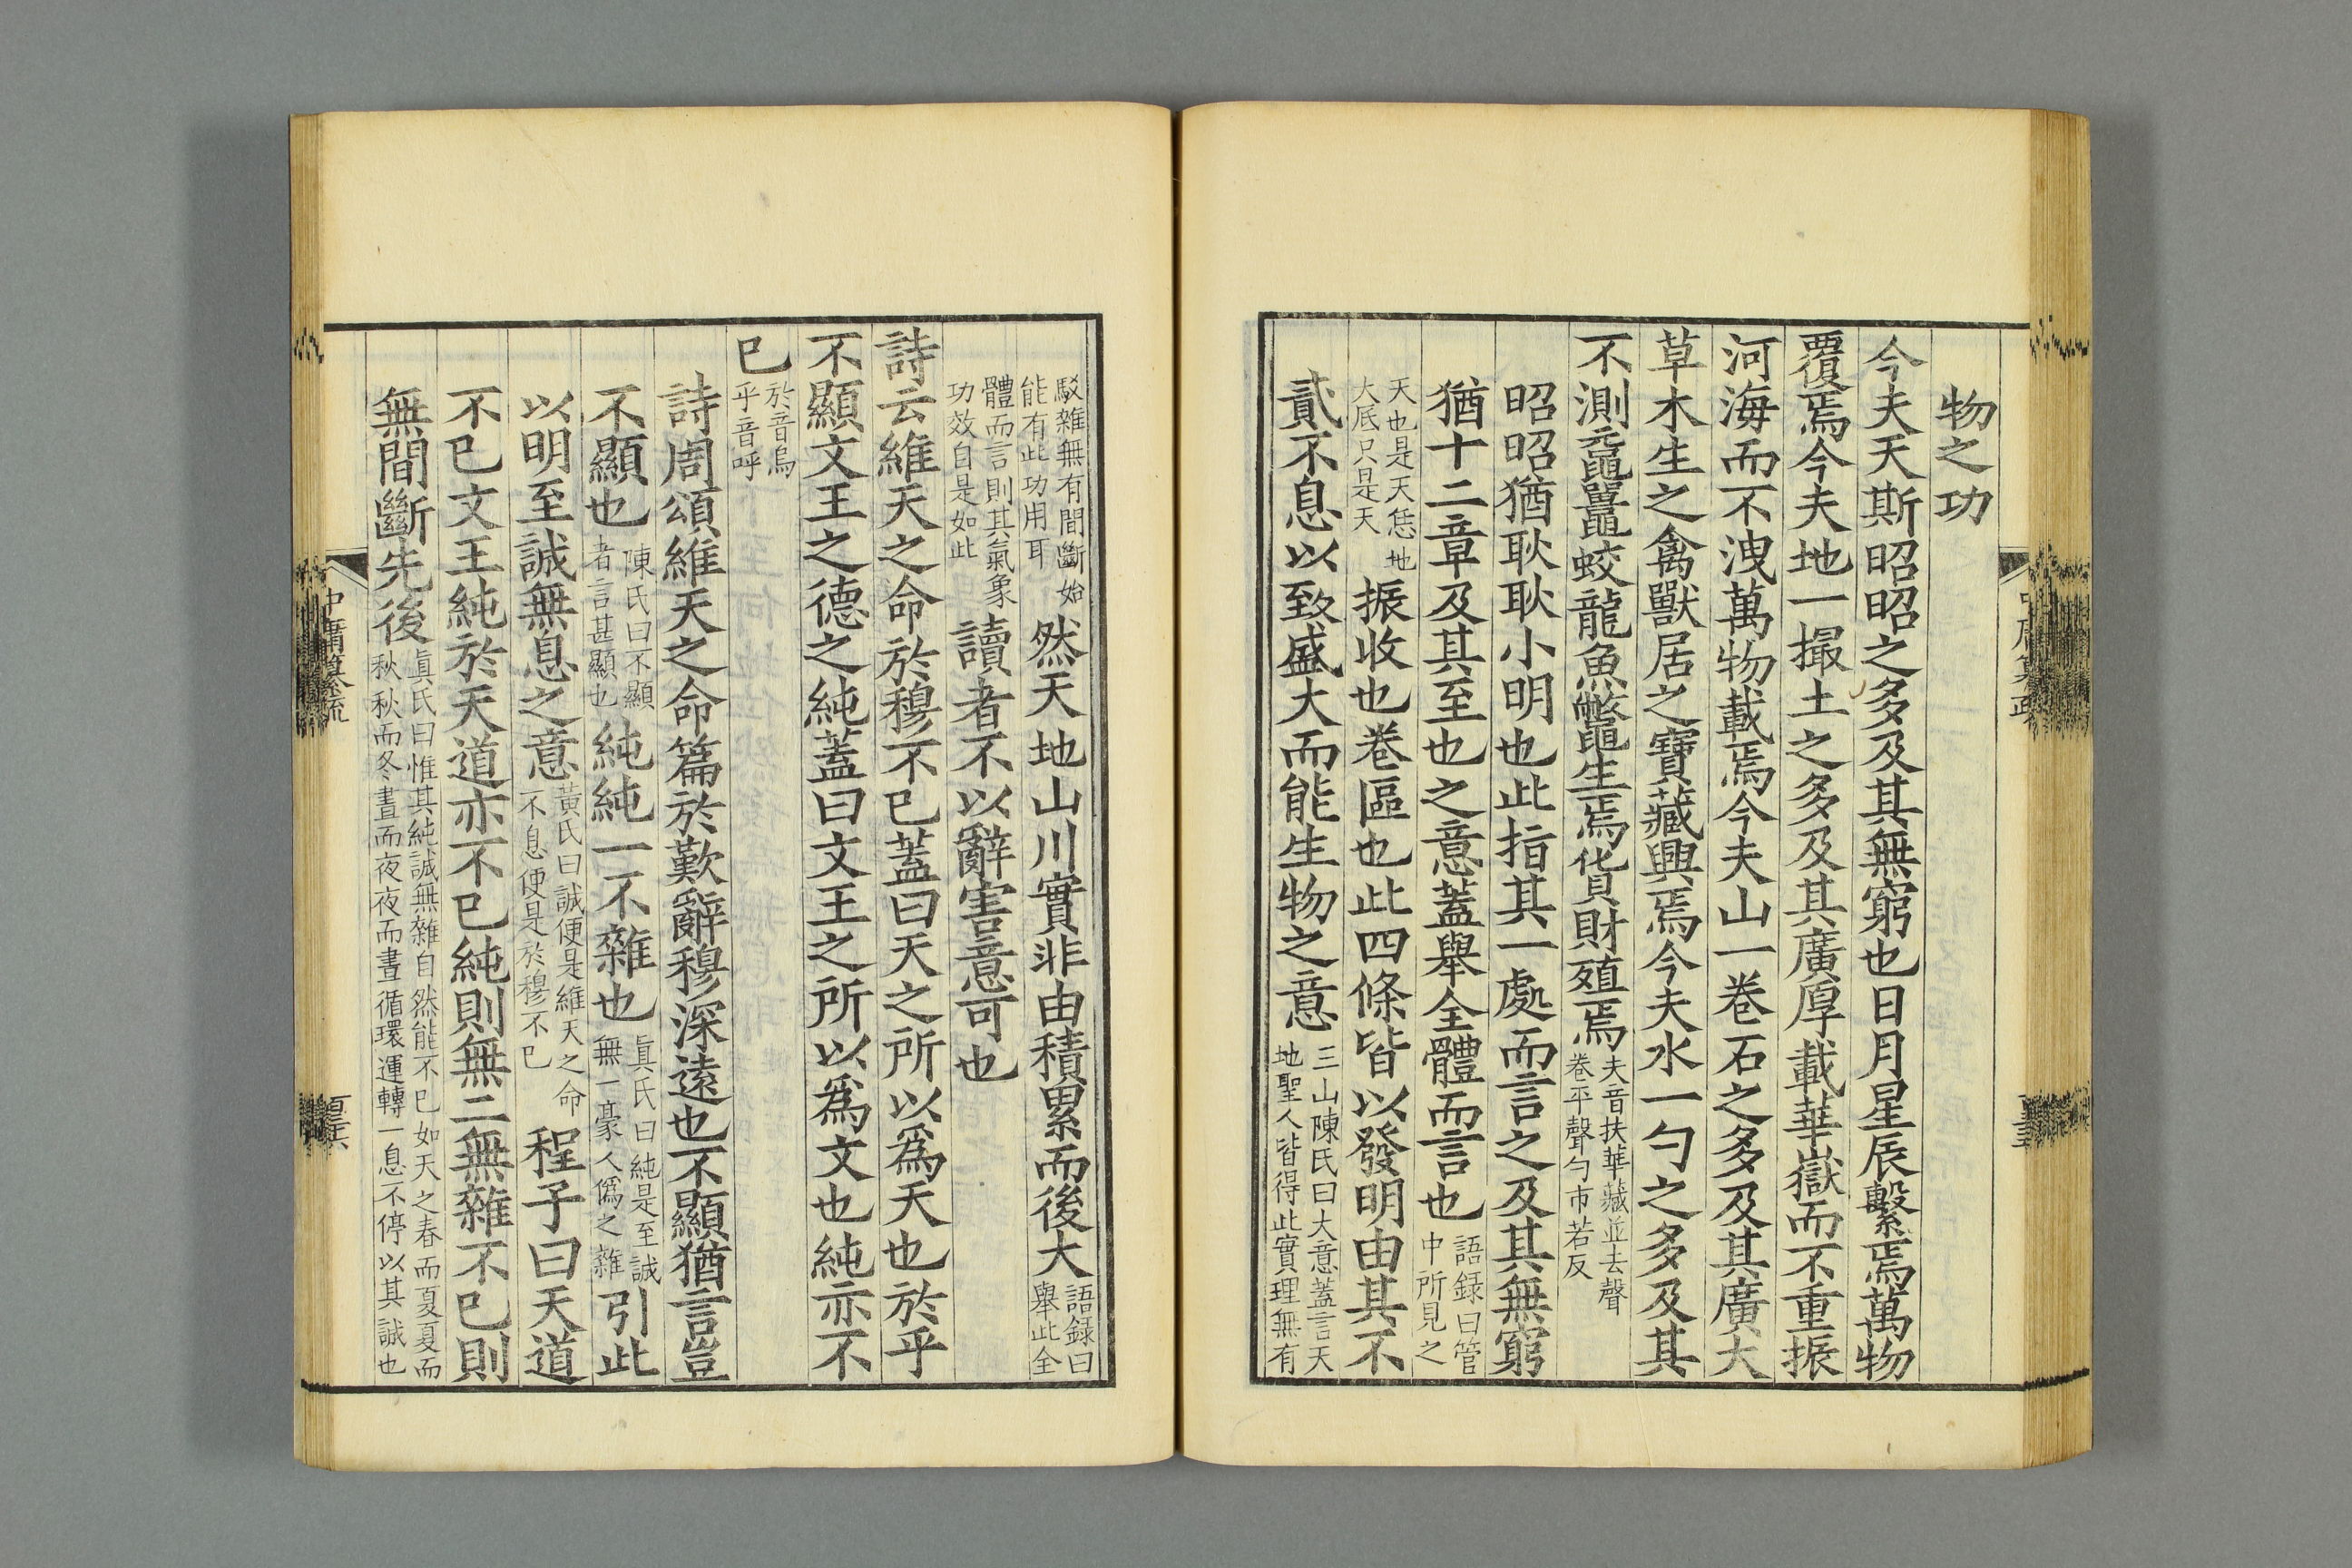 物之功
今夫天斯昭昭之多及其無窮也日月星辰繫焉萬物
覆焉今夫地一撮土之多及其廣厚載華嶽而不重振
河海而不洩萬物載焉今夫山一卷石之多及其廣大
草木生之禽獸居之寶藏興焉今夫水一勺之多及其
不測黿鼉蛟龍魚鼈生焉貨財殖焉夫音扶華藏並去聲卷平聲勺市若反
昭昭猶耿耿小明也此指其一處而言之及其無窮
猶十二章及其至也之意蓋舉全體而言也語録曰管中所見之
天也是天恁地大底只是天振收也卷區也此四條皆以發明由其不
貳不息以致盛大而能生物之意三山陳氏曰大意蓋言天地聖人皆得此實理無有
駁雜無有間斷始能有此功用耳然天地山川實非由積累而後大語録曰舉此全
體而言則其氣象功效自是如此讀者不以辭害意可也
詩云維天之命於穆不已蓋曰天之所以爲天也於乎
不顯文王之德之純蓋曰文王之所以爲文也純亦不
已於音烏乎音呼
詩周頌維天之命篇於歎辭穆深遠也不顯猶言豈
不顯也陳氏曰不顯者言甚顯也純純一不雜也眞氏曰純是至誠無一豪人僞之雜引此
以明至誠無息之意黃氏曰誠便是維天之命不息便是於穆不已程子曰天道
不已文王純於天道亦不已純則無二無雜不已則
無間斷先後眞氏曰惟其純誠無雜自然能不已如天之春而夏夏而秋秋而冬晝而夜夜而晝循環運轉一息不停以其誠也
中庸纂疏